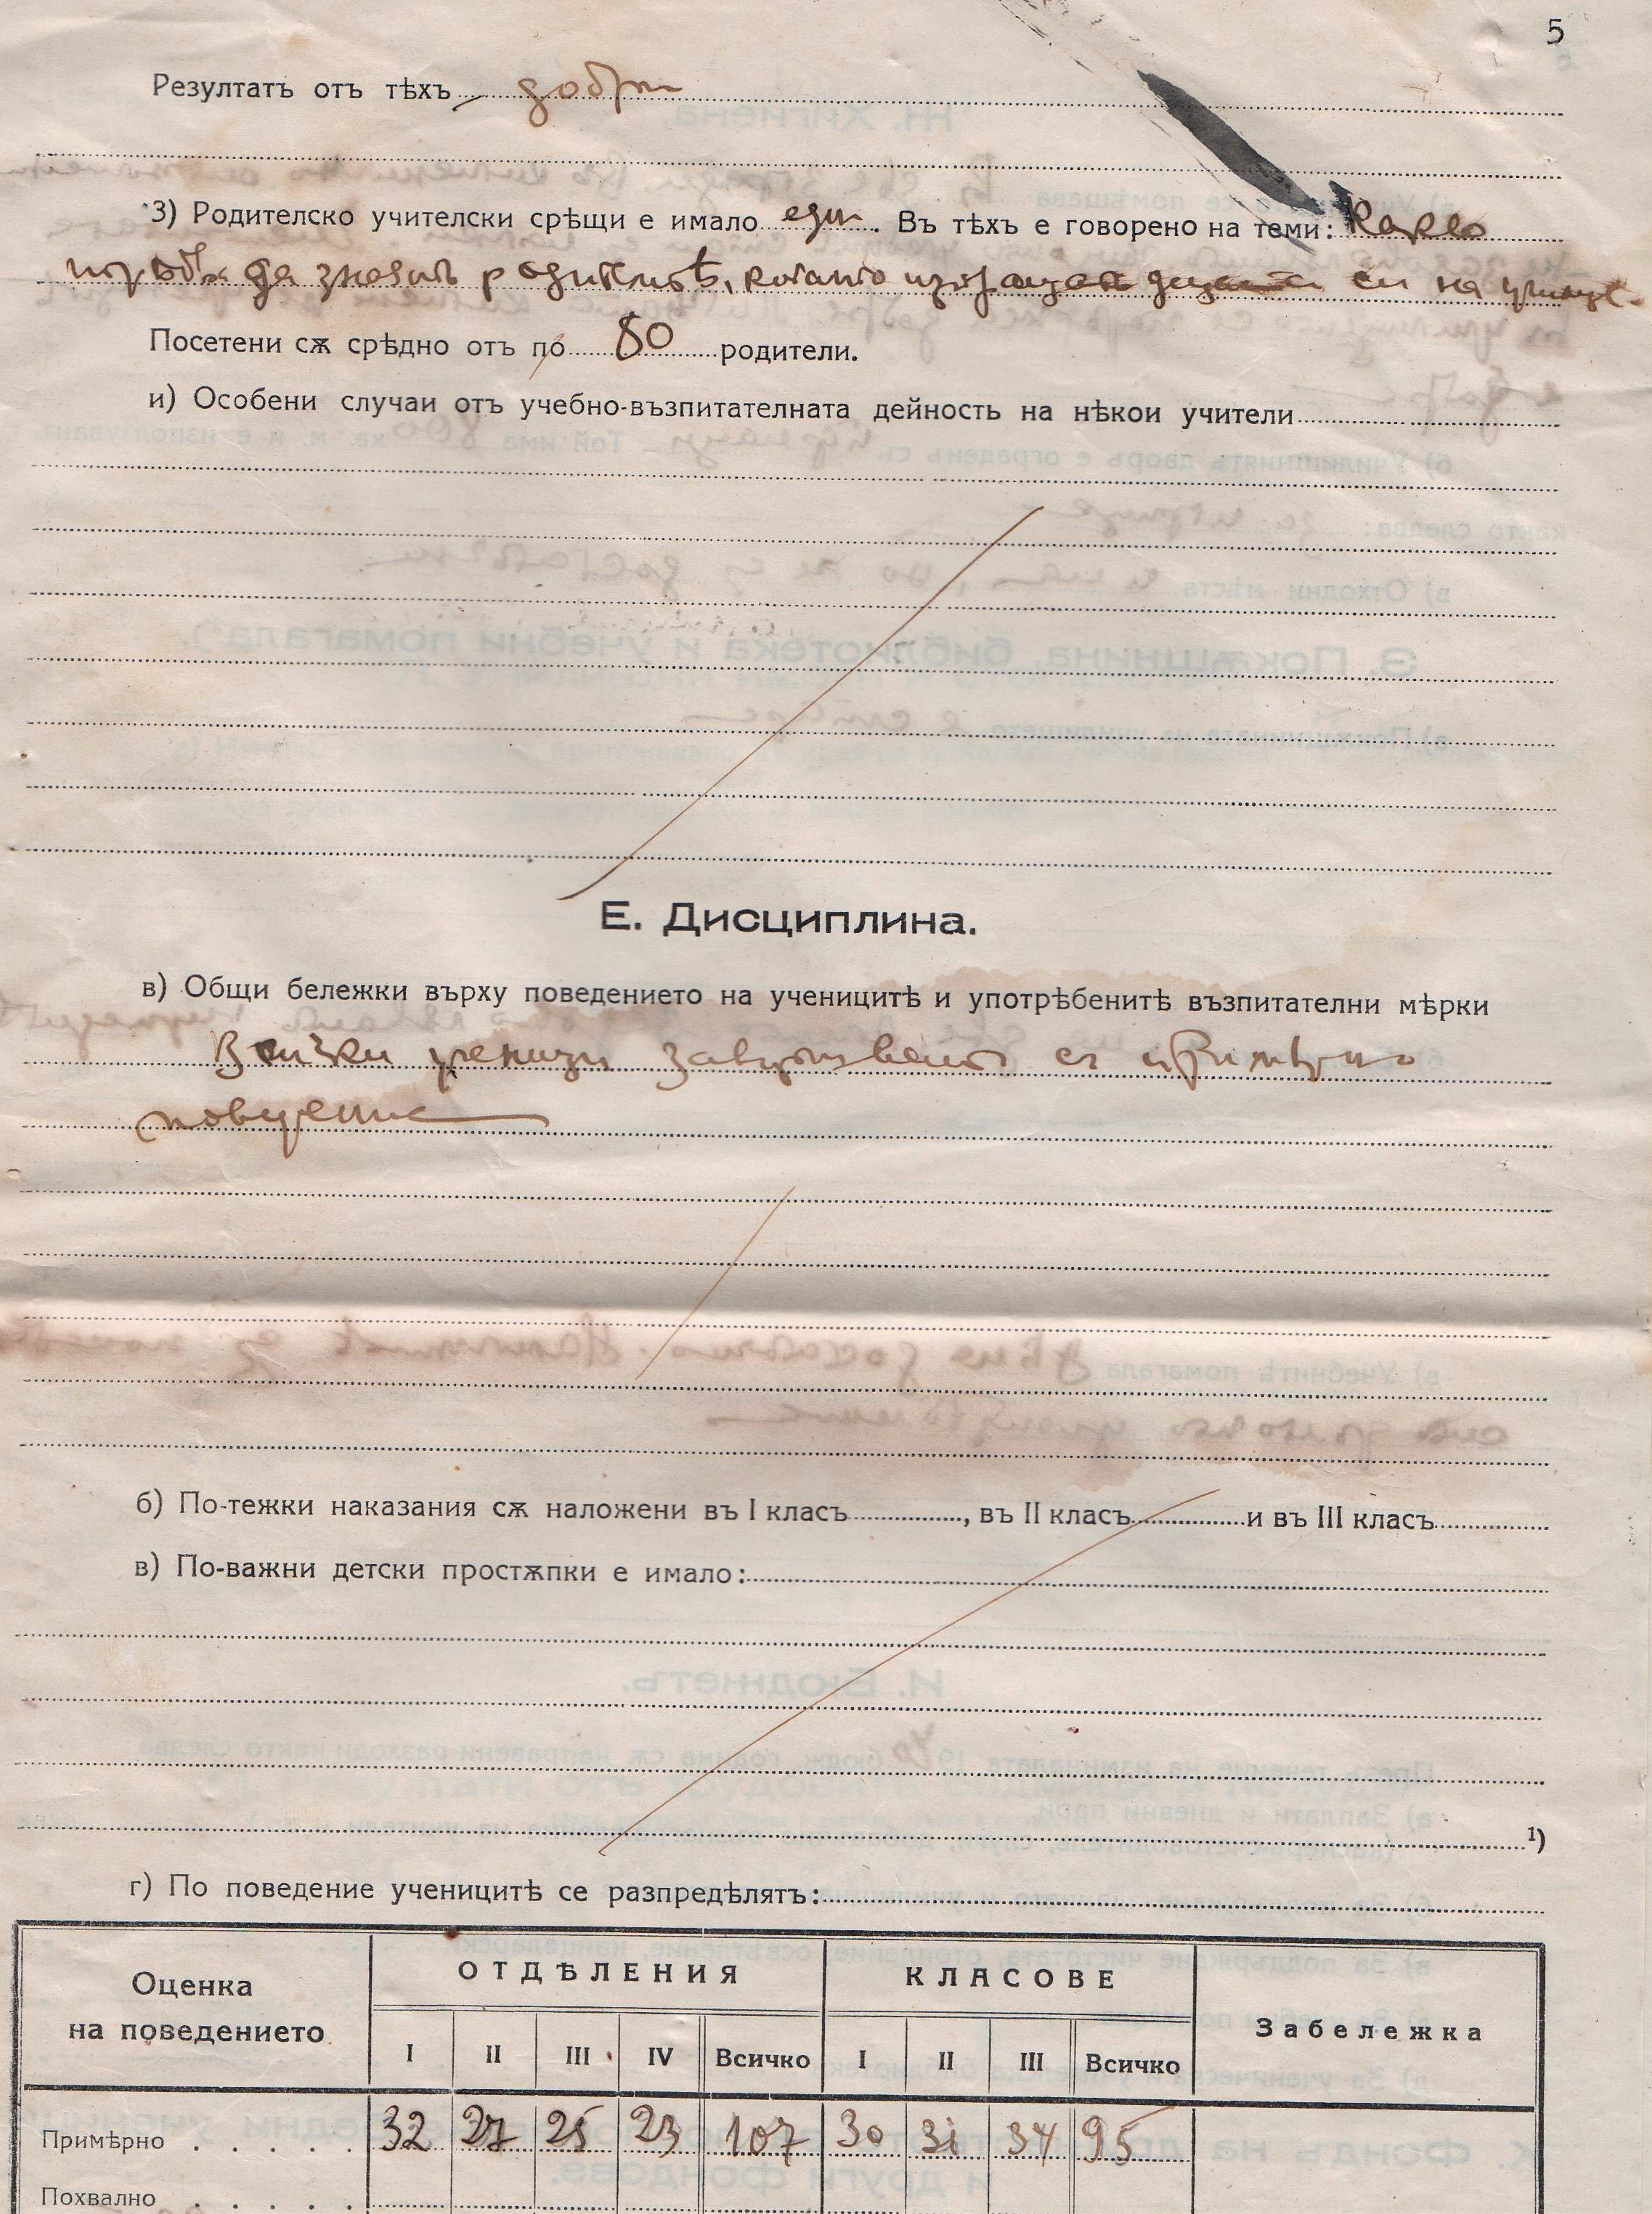 5
Резултатъ отъ тѣхъ добри
3) Родителско учителски срѣщи е имало един. Въ тѣхъ е говорено на теми: Какво
трѣбва да знаятъ родителитѣ, когато изпращатъ децата си на училище
Посетени сѫ срѣдно отъ по 80 родители.
и) Особени случаи отъ учебно-възпитателната дейность на нѣкои учители
Е. Дисциплина.
в) Общи бележки върху поведението на ученицитѣ и употрѣбенитѣ възпитателни мѣрки
Всички ученици завършватъ съ примѣрно
поведение
б) По-тежки наказания сѫ наложени въ I класъ, въ II класъ и въ III класъ
в) По-важни детски простѫпки е имало:
1)
г) По поведение ученицитѣ се разпредѣлятъ:
Оценка на поведението ОТДѢЛЕНИЯ КЛАСОВЕ Забележка
I II III IV Всичко I II III Всичко
Примѣрно 32 27 25 23 107 30 31 34 95
Похвално